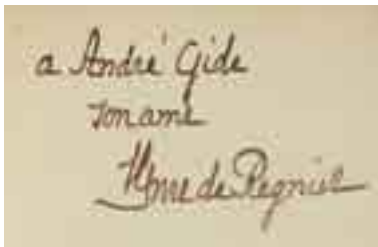 a André Gide
son ami
H de Regnier